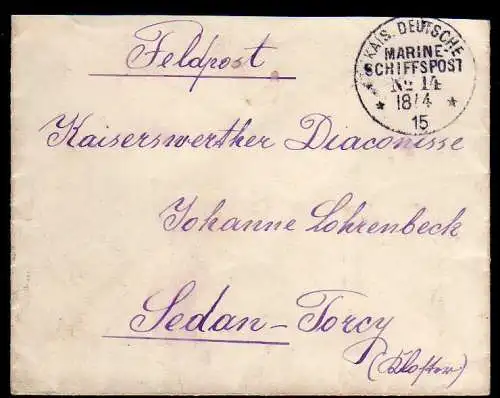 Feldpost
KAIS. DEUTSCHE
MARINE-
SCHIFFSPOST
No 14
* 18/4 *
15
Kaiserswerther Diaconisse
Johanne Lohrenbeck
Sedan-Torcy
(Kloster)